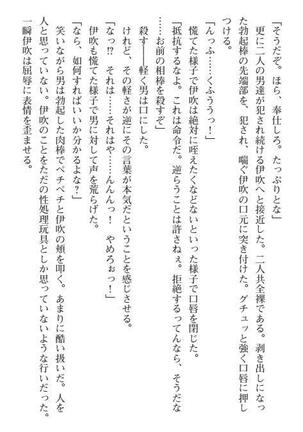 「そうだぞ。ほら、奉仕しろ。たっぷりとな」
更に二人の男達が犯され続ける伊吹へと接近した。二人共全裸である。剥き出しになっ
た勃起棒の先端部を、犯され、喘ぐ伊吹の口元に突き付けた。グチュッと強く口唇に押し
つける。
「んっふ……くふううっ！」
慌てた様子で伊吹は絶対に咥えたくなどないといった様子で口唇を閉じた。
「抵抗するなよ。これは命令だ。逆らうことは許さねぇ。拒絶するってんなら、そうだな
……お前の相棒を殺すぞ」
殺す――軽く男は口にした。
けれど、その軽さが逆にその言葉が本気だということを感じさせる。
「なっ⁉ それは……それはや……んんんっ！ やめろぉっ！」
伊吹も慌てた様子で男に対して声を荒らげた。
「なら、如何すればいいか分かるよな？」
笑いながら男は勃起した肉棒でペチペチと伊吹の頬を叩く。あまりに酷い扱いだ。人を
人と思っていない。伊吹のことをただの性処理玩具としか思っていないような行いだった。
一瞬伊吹は屈辱に表情を歪ませる。